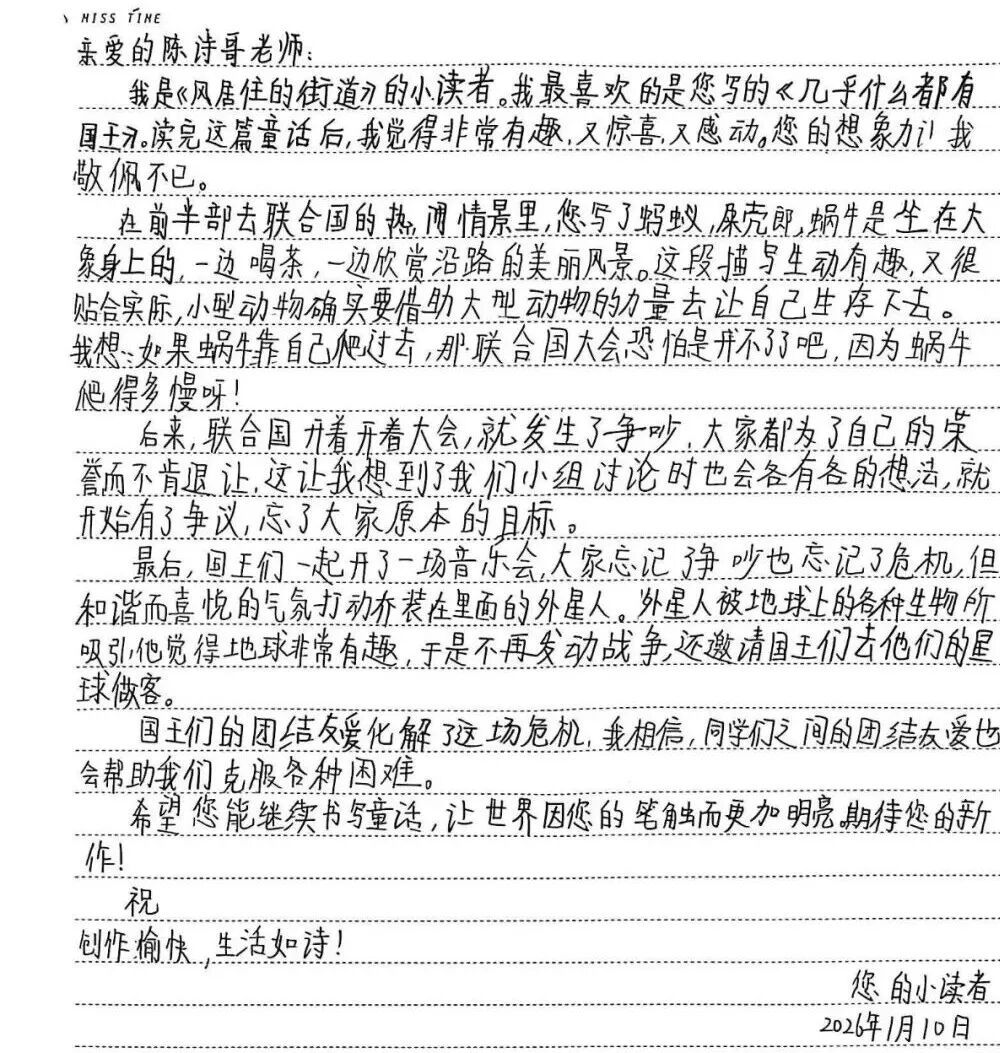 MISS TIME
亲爱的陈诗哥老师:
我是《风居住的街道》的小读者。我最喜欢的是您写的《几乎什么都有
国王》。读完这篇童话后,我觉得非常有趣,又惊喜,又感动。您的想象力让我
敬佩不已。
在前半部去联合国的热闹情景里,您写了蚂蚁,屎壳郎,蜗牛是坐在大
象身上的,一边喝茶,一边欣赏沿路的美丽风景。这段描写生动有趣,又很
贴合实际,小型动物确实要借助大型动物的力量去让自己生存下去。
我想:如果蜗牛靠自己爬过去,那联合国大会恐怕是开不了了吧,因为蜗牛
爬得多慢呀!
后来,联合国开着开着大会,就发生了争吵,大家都为了自己的荣
誉而不肯退让,这让我想到了我们小组讨论时也会各有各的想法,就
开始有了争议,忘了大家原本的目标。
最后,国王们一起开了一场音乐会,大家忘记了争吵也忘记了危机,但
和谐而喜悦的气氛打动乔装在里面的外星人。外星人被地球上的各种生物所
吸引,他觉得地球非常有趣,于是不再发动战争,还邀请国王们去他们的星
球做客。
国王们的团结友爱化解了这场危机,我相信,同学们之间的团结友爱也
会帮助我们克服各种困难。
希望您能继续书写童话,让世界因您的笔触而更加明亮。期待您的新
作!
祝
创作愉快,生活如诗!
您的小读者
2026年1月10日